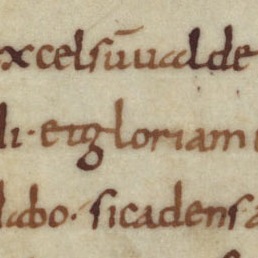 xcelsū ualde
li · et gloriam
labo · si cadens a